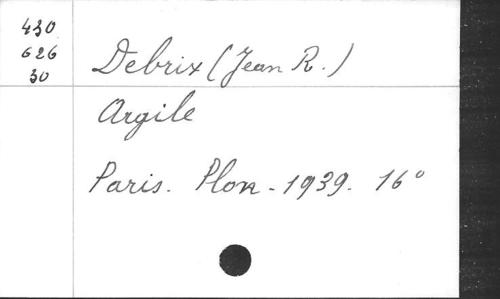 430
626
30
Debrix (Jean R.)
Argile
Paris. Plon - 1939. 16°